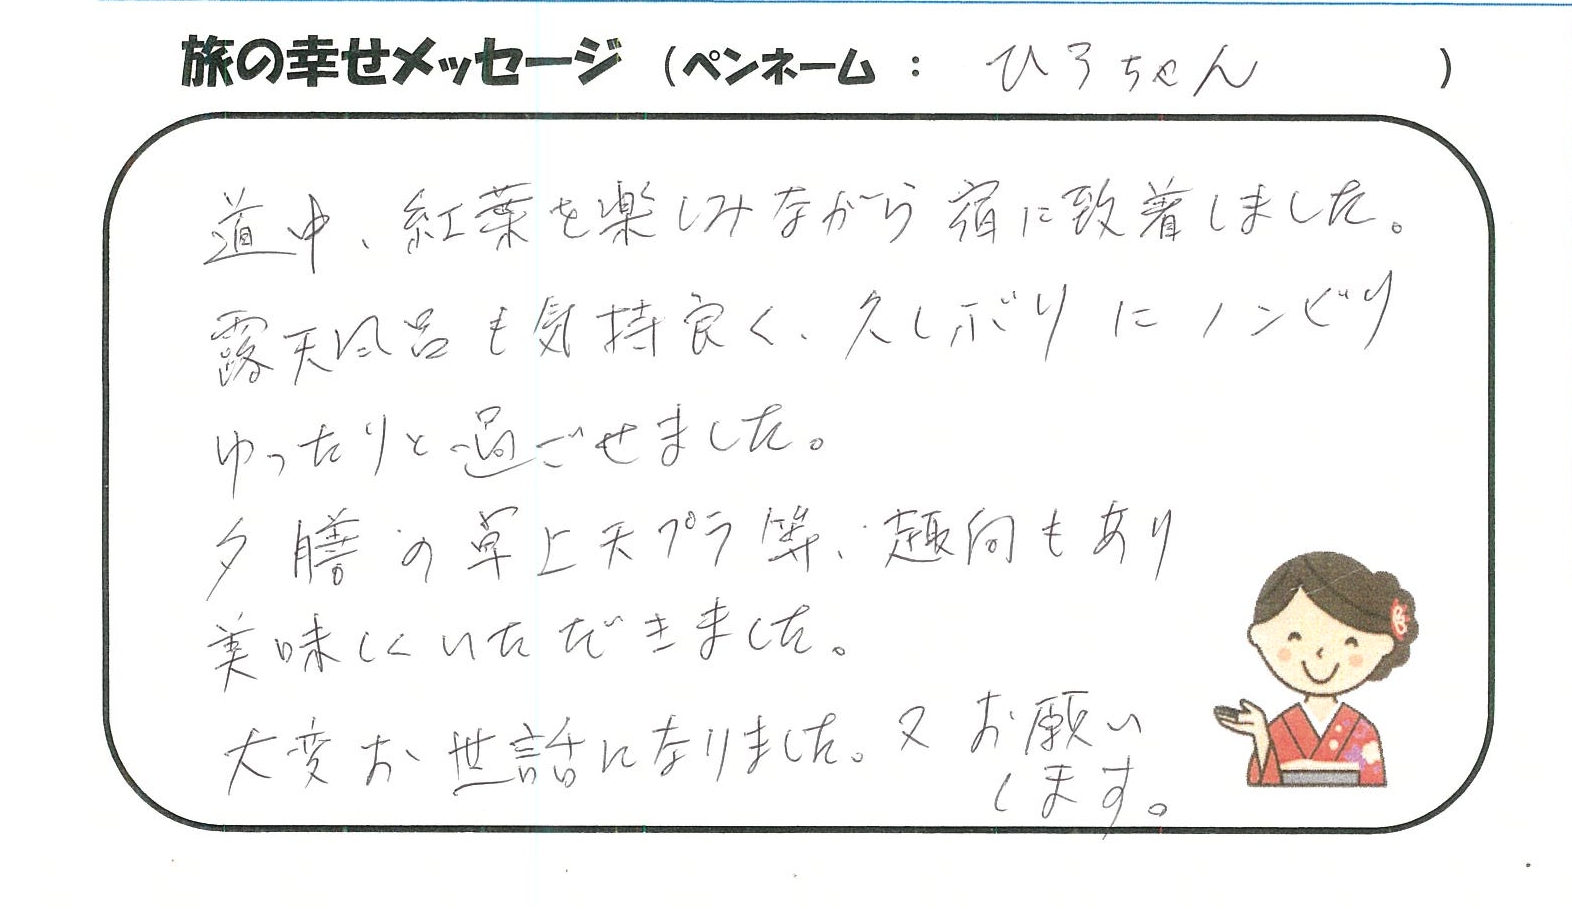 旅の幸せメッセージ (ペンネーム : ひろちゃん )
道中、紅葉を楽しみながら宿に致着しました。
露天風呂も気持良く、久しぶりにノンビリ
ゆったりと過ごせました。
夕膳の卓上天プラ等、趣向もあり
美味しくいただきました。
大変お世話になりました。又お願い
します。